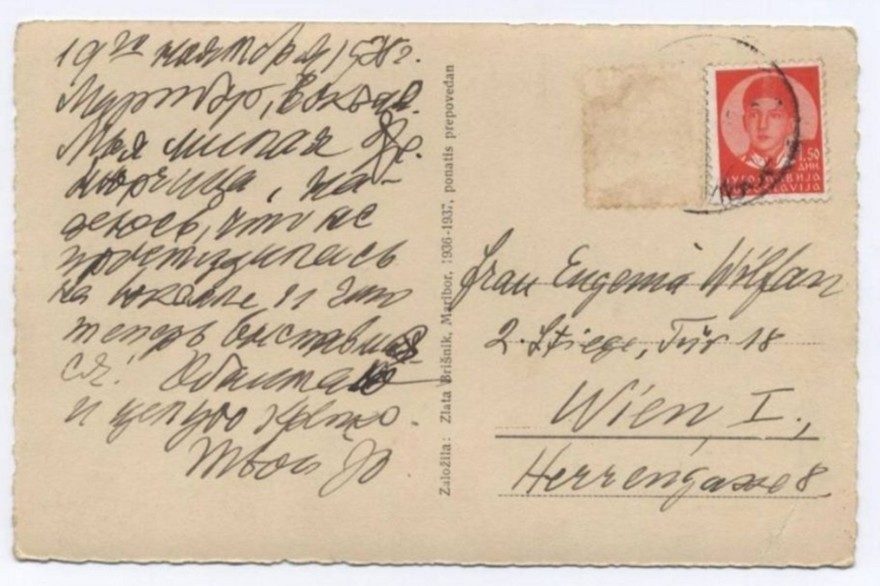 19го ноября 1938г.
Марибор, вокзал.
Моя милая
на-
деюсь, что не
простудилась
на вокзале и что
теперь
ся!
и целую крепко.
Твой
Založila: Zlata Brišnik, Maribor, 1936-1937, ponatis prepovedan
1.50
ДИН
ЈУГОСЛАВИЈА
JUGOSLAVIJA
Frau Eugenia Wilfan
2. Stiege, Tür 18
Wien, I.,
Herrengasse 8